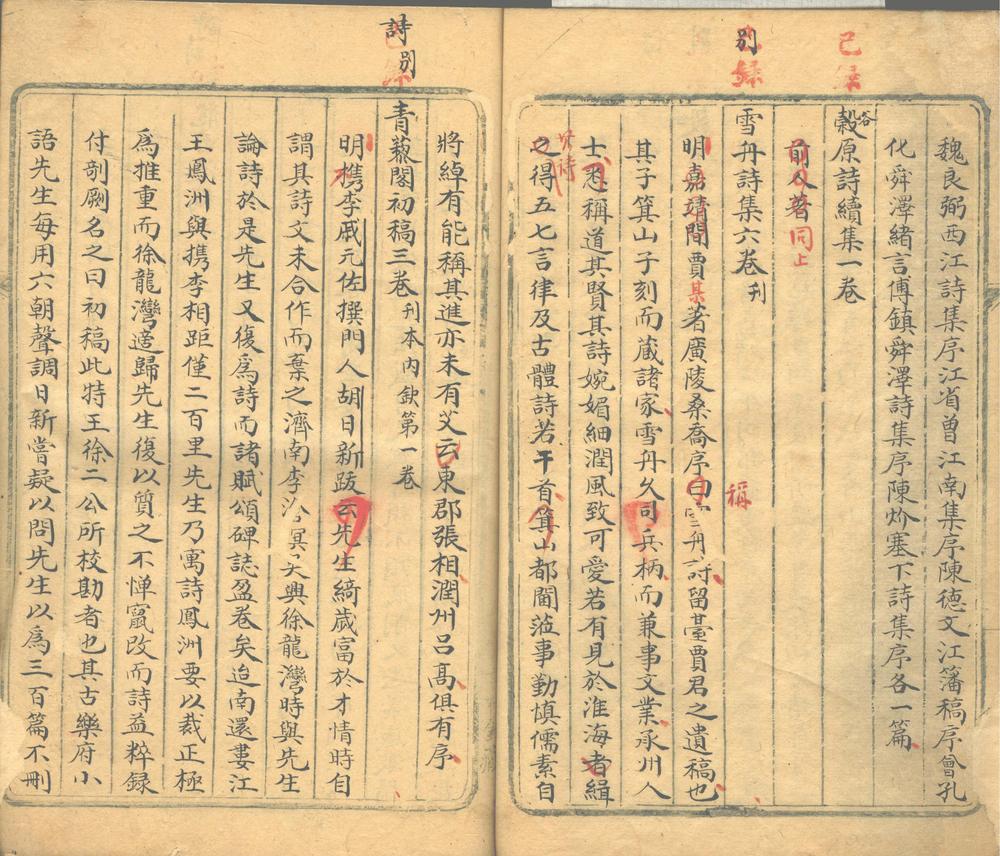 魏良弼西江詩集序江省曾江南集序陳德文江籓稿序曾孔
化舜澤緒言傅鎮舜澤詩集序陳炌塞下詩集序各一篇
已录
榖原詩續集一卷
谷
前人著同上
別
录
雪舟詩集六卷刊
明嘉靖間賈某著廣陵桑喬序曰雪舟詩留臺賈君之遺稿也
稱
其子箕山子刻而藏諸家雪舟久司兵柄而兼事文業承州人
士悉稱道其賢其詩婉媚細潤風致可愛若有見於淮海者緝
其詩
之得五七言律及古體詩若干首箕山都閫蒞事勤慎儒素自
將綽有能稱其進亦未有艾云東郡張相潤州呂高俱有序
詩別
青藜閣初稿三卷刊本內欽第一卷
明檇李戚元佐撰門人胡日新跋云先生綺歲富於才情時自
謂其詩文未合作而棄之濟南李滄溟吳興徐龍灣時與先生
論詩於是先生又復為詩而諸賦頌碑誌盈卷矣迨南還婁江
王鳳洲與携李相距僅二百里先生乃寓詩鳳洲要以裁正極
為推重而徐龍灣適歸先生復以質之不憚竄改而詩益粹録
付剞劂名之曰初稿此特王徐二公所校勘者也其古樂府小
語先生每用六朝聲調日新嘗疑以問先生以為三百篇不刪